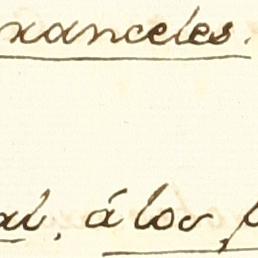 xanceles.
al, á los